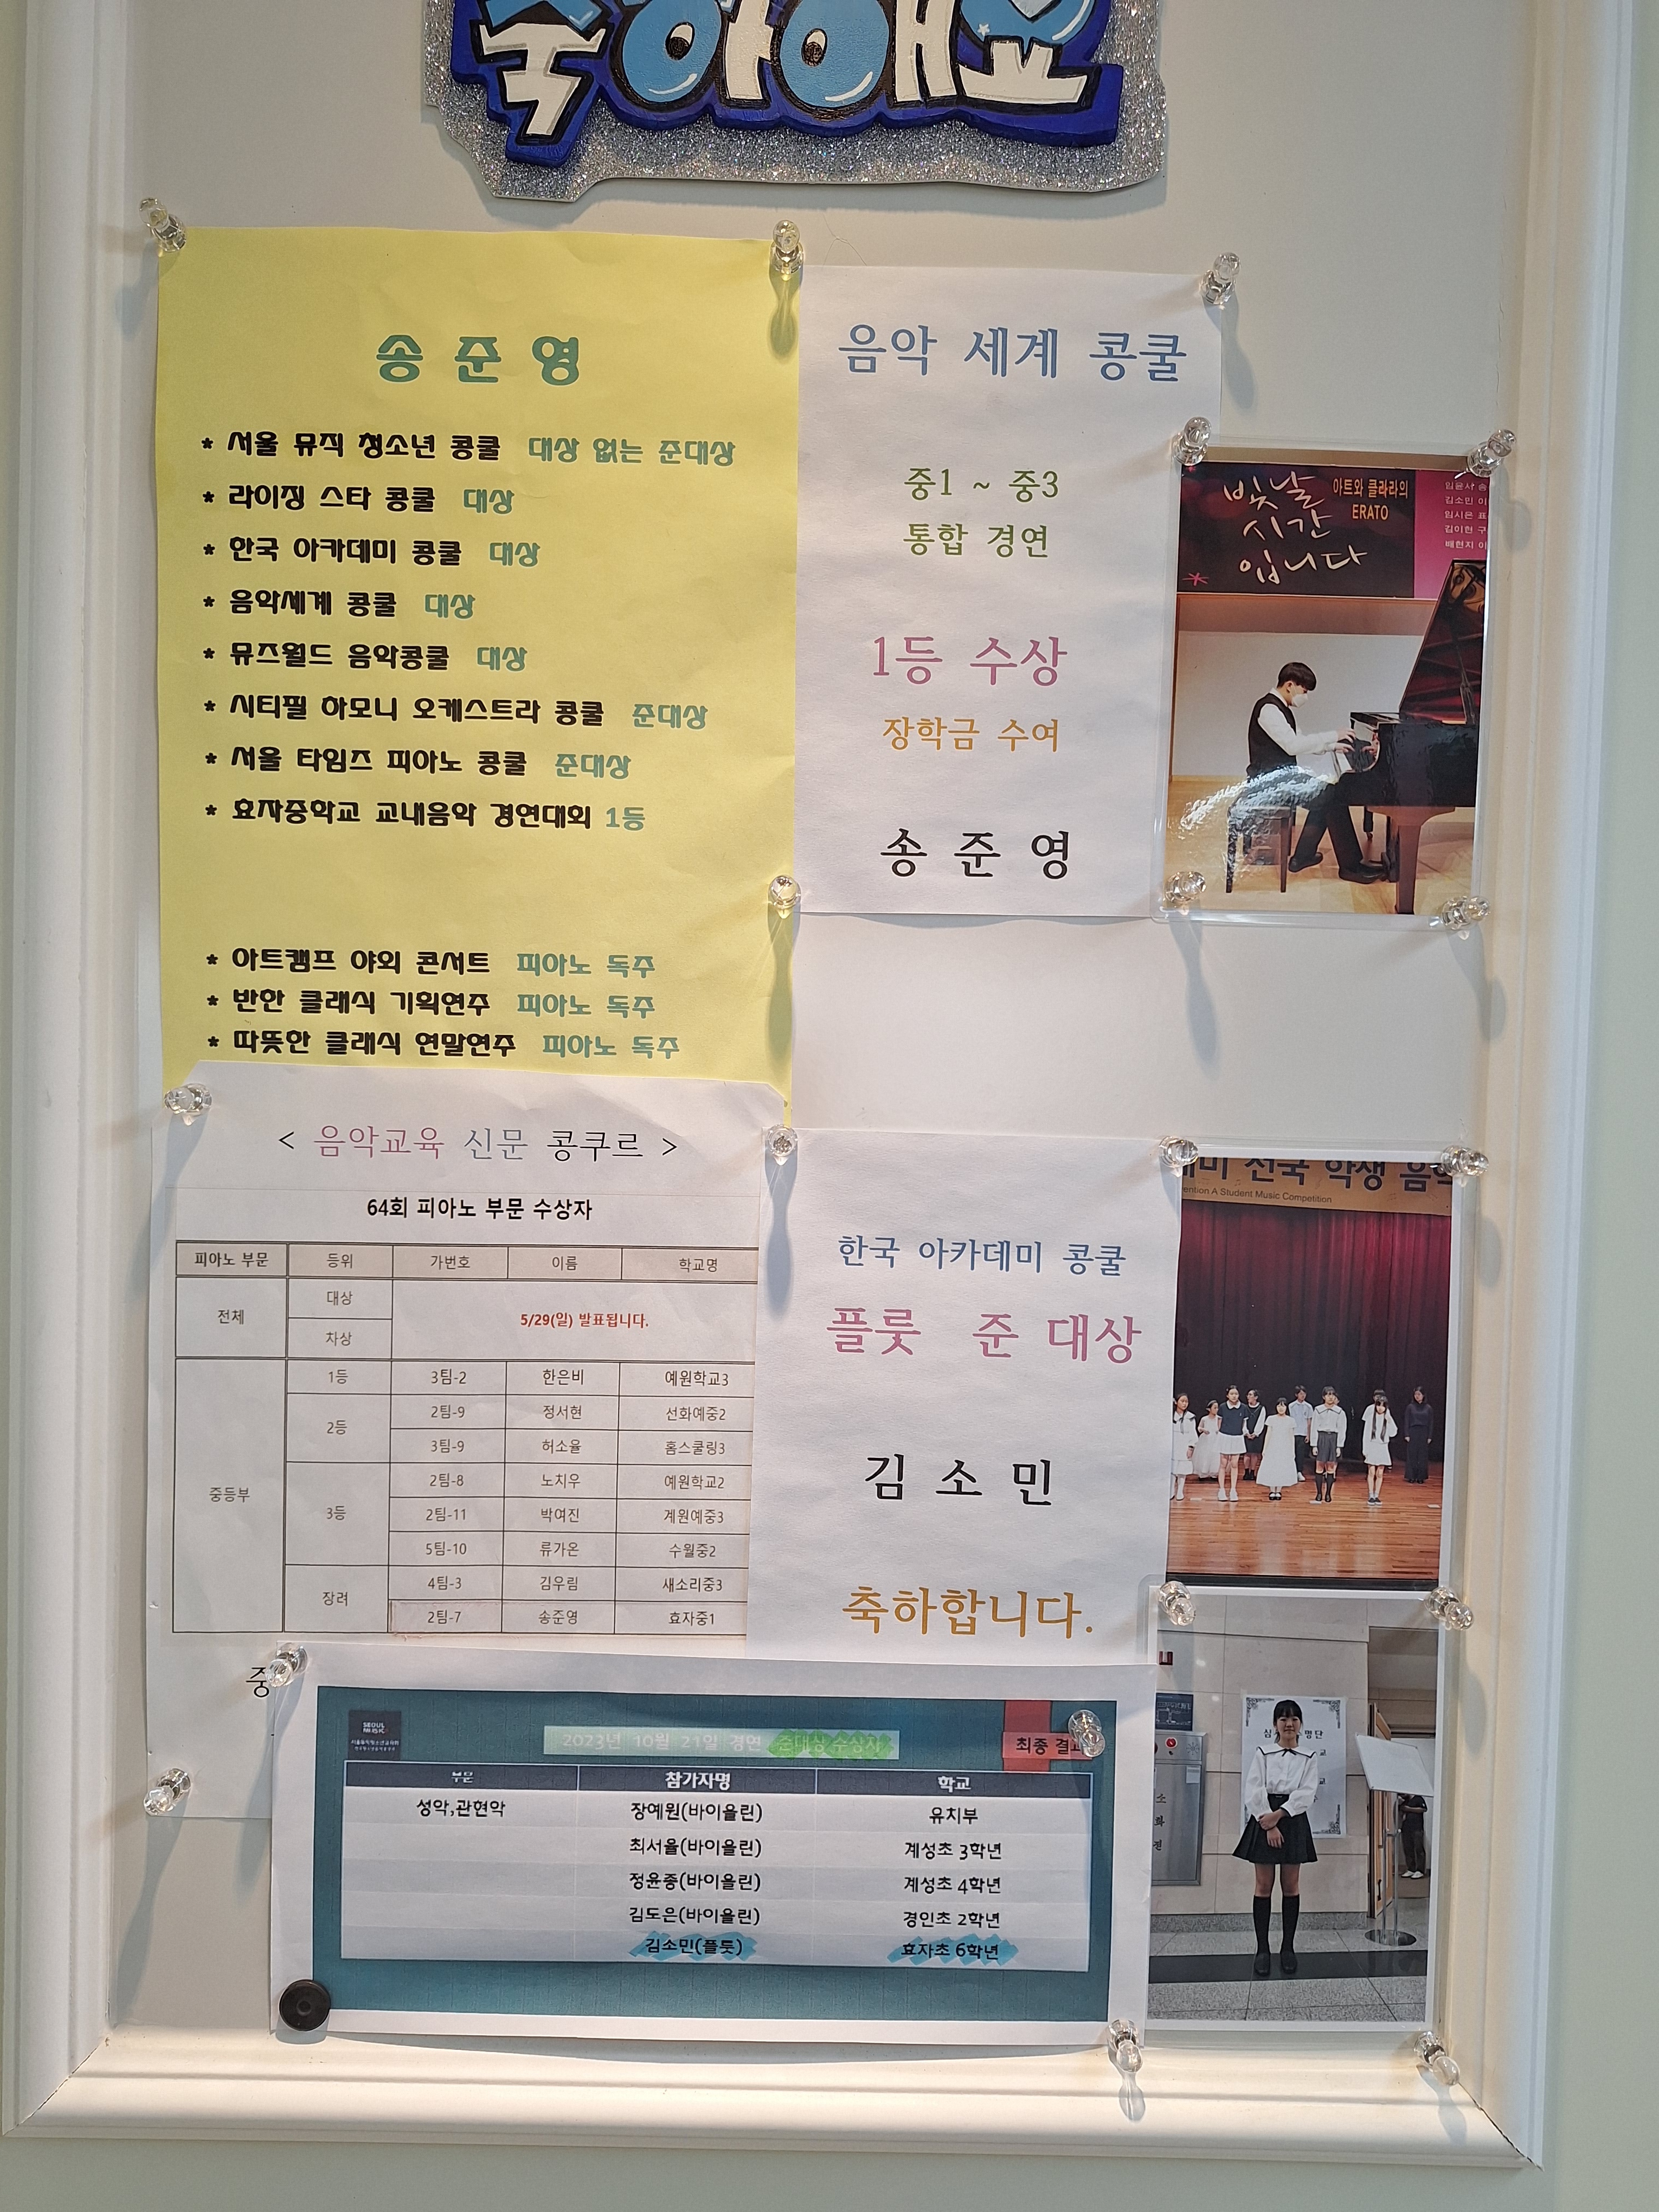 축하해요
송 준 영
* 서울 뮤직 청소년 콩쿨 대상 없는 준대상
* 라이징 스타 콩쿨 대상
* 한국 아카데미 콩쿨 대상
* 음악세계 콩쿨 대상
* 뮤즈월드 음악콩쿨 대상
* 시티필 하모니 오케스트라 콩쿨 준대상
* 서울 타임즈 피아노 콩쿨 준대상
* 효자중학교 교내음악 경연대회 1등
* 아트캠프 야외 콘서트 피아노 독주
* 반한 클래식 기획연주 피아노 독주
* 따뜻한 클래식 연말연주 피아노 독주
음악 세계 콩쿨
중1 ~ 중3
통합 경연
1등 수상
장학금 수여
송 준 영
빛날
시간
입니다
아트와 클라라의
ERATO
김소민 이
임시은 표
김이현 구
배현지 이
< 음악교육 신문 콩쿠르 >
64회 피아노 부문 수상자
피아노 부문 등위 가번호 이름 학교명
전체 대상 5/29(일) 발표됩니다.
차상
중등부 1등 3팀-2 한은비 예원학교3
2등 2팀-9 정서현 선화예중2
3팀-9 허소율 홈스쿨링3
3등 2팀-8 노치우 예원학교2
2팀-11 박여진 계원예중3
5팀-10 류가온 수월중2
장려 4팀-3 김우림 새소리중3
2팀-7 송준영 효자중1
중
한국 아카데미 콩쿨
플룻 준 대상
김 소 민
축하합니다.
데미 전국 학생 음악
vention A Student Music Competition
SEOUL
MUSIC
2023년 10월 21일 경연 준대상 수상자
최종 결과
부문 참가자명 학교
성악,관현악 장예원(바이올린) 유치부
최서율(바이올린) 계성초 3학년
정윤종(바이올린) 계성초 4학년
김도은(바이올린) 경인초 2학년
김소민(플룻) 효자초 6학년
심 명단
소
화
전